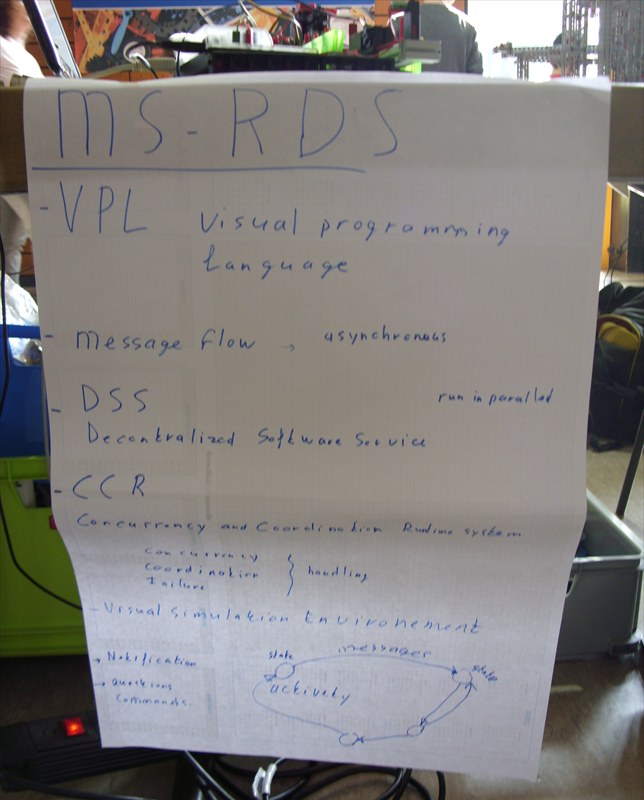 MS-RDS
- VPL visual programming
language
- message flow → asynchronous
run in paralled
- DSS
Decentralized Software Service
- CCR
Concurrency and Coordination Runtime system
concurrency
coordination } handling
failure
- Visual Simulation Environement
→ Notification
→ questions
commands.
state messages state
actively